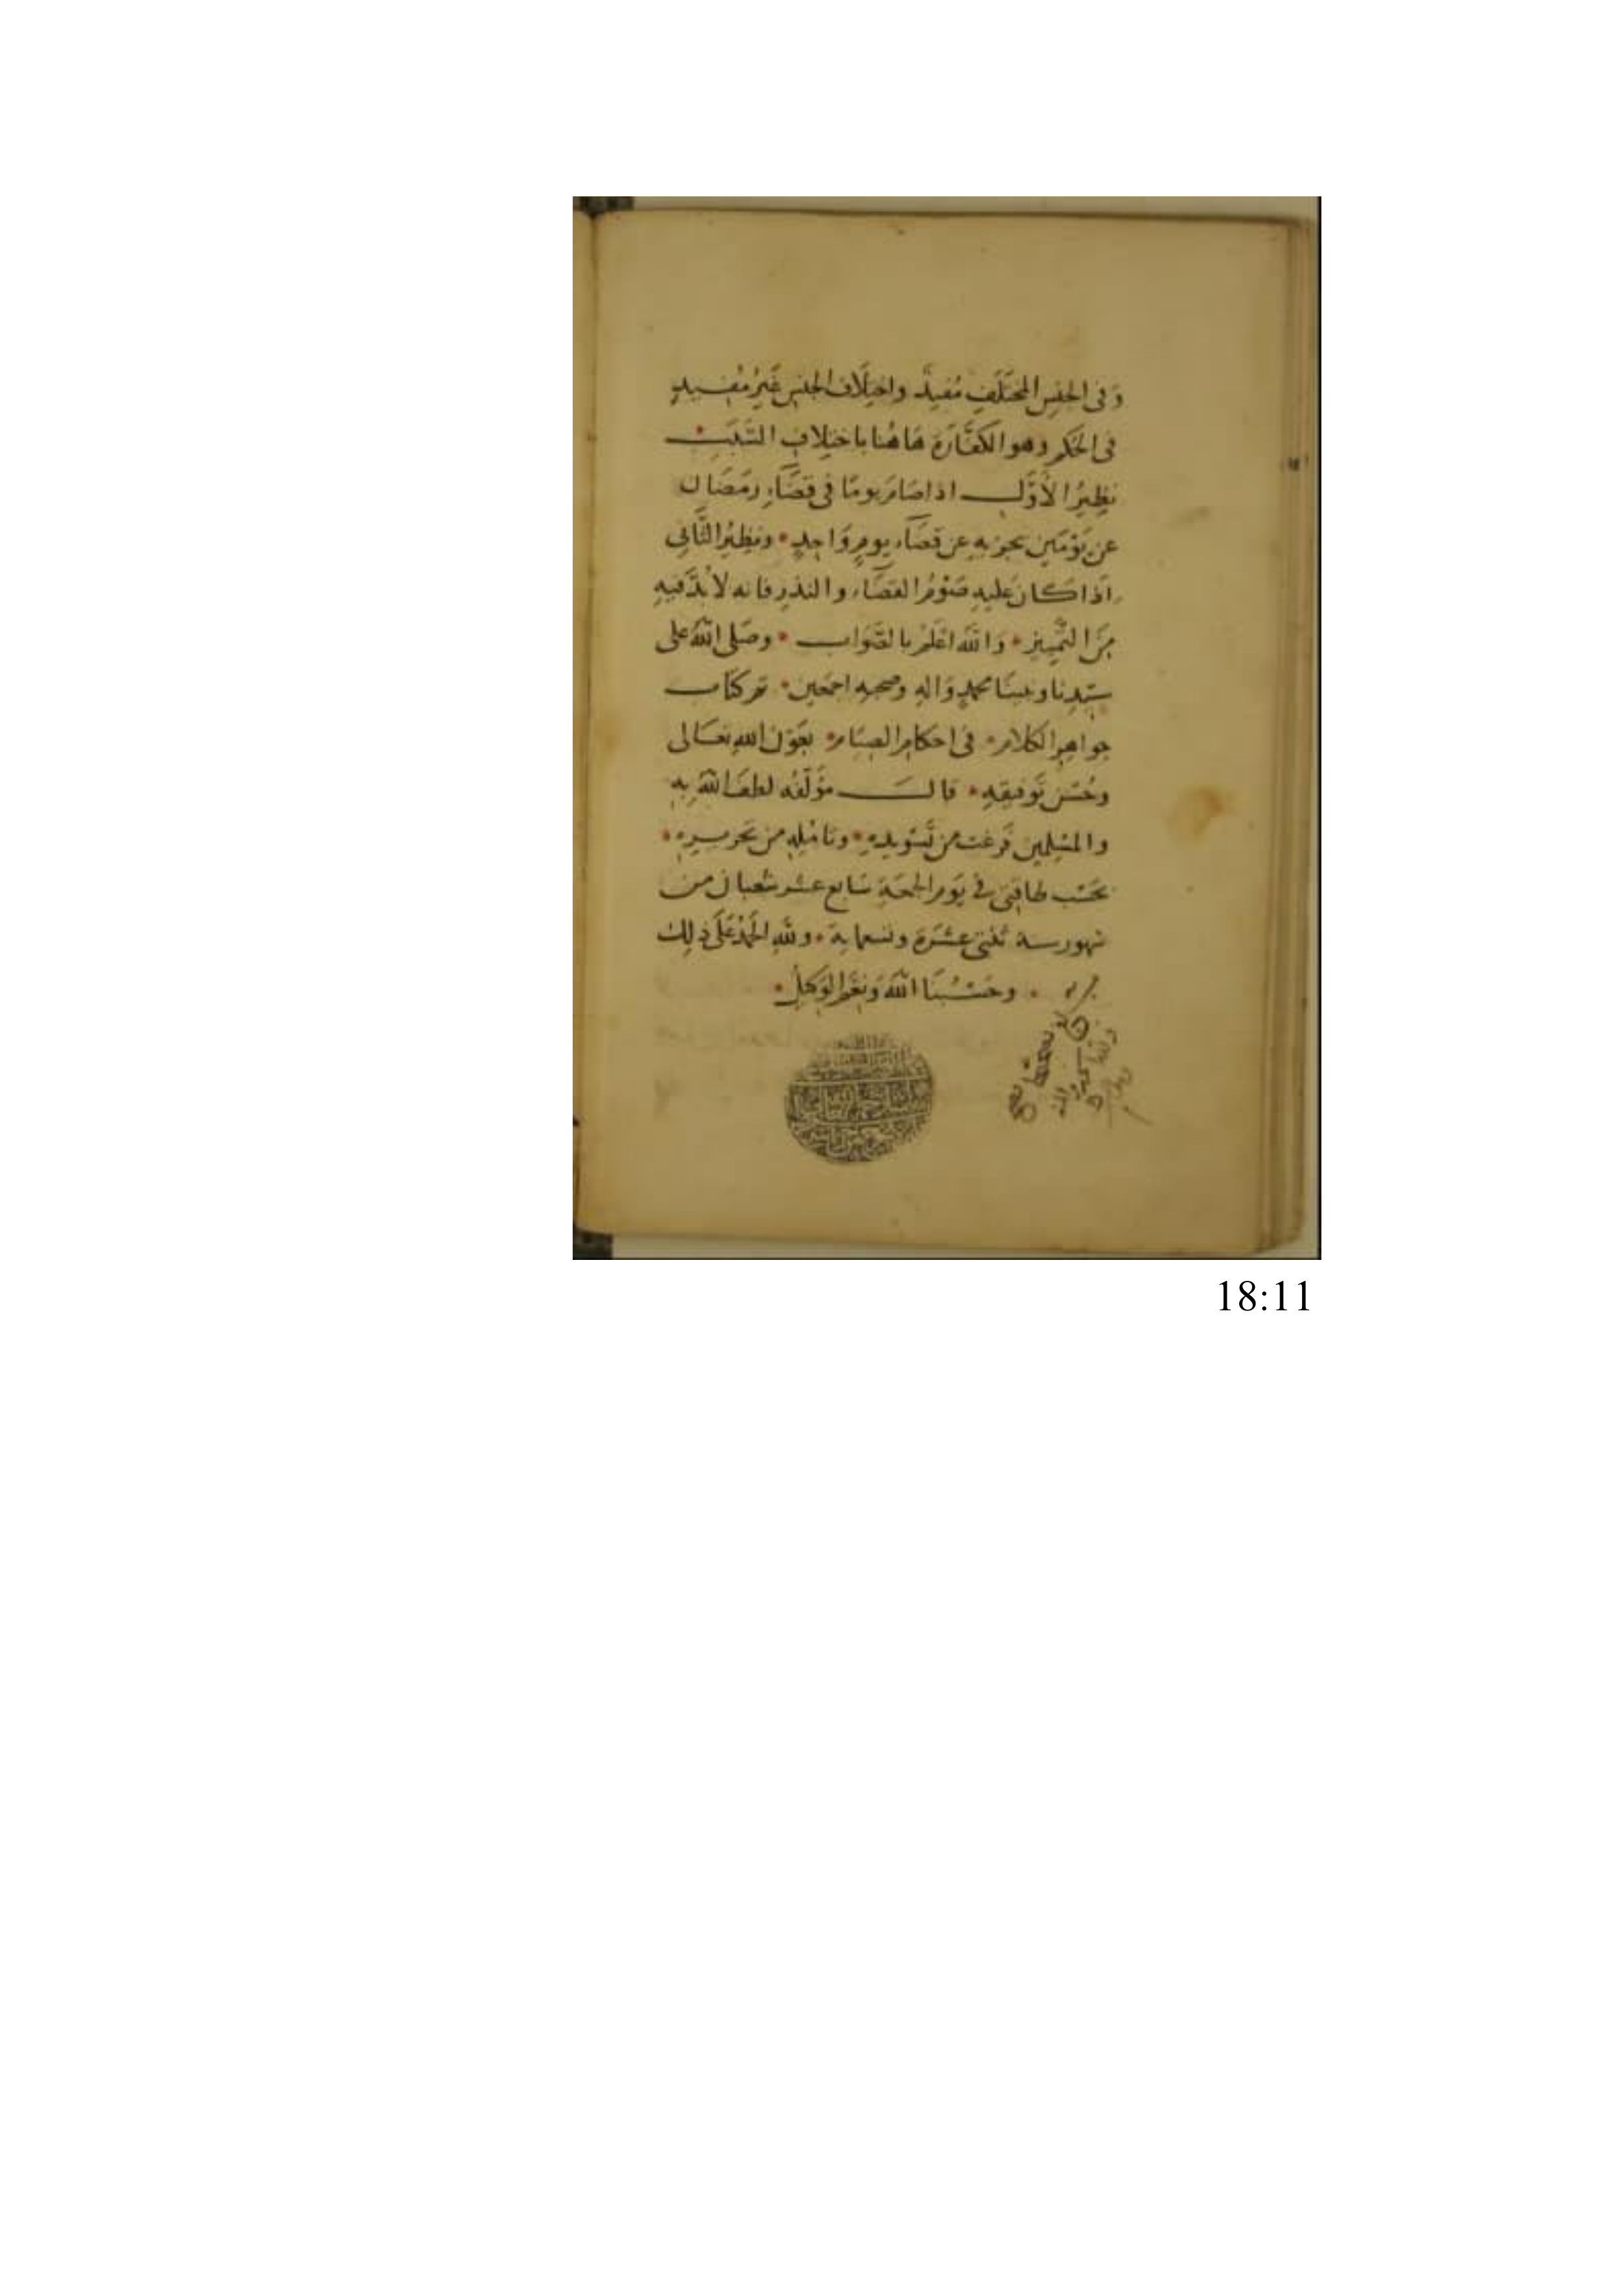 وَفى الجنسِ المُختلَفِ مُفيدٌ واختِلَاف الجنسِ غَيرُ مُفِـيدٍ
فى الحُكمِ وهو الكَفَّارَة هَاهُنا باختِلافِ السَّبَبِ
نظِيرُ الأَوَّلِ اذا صَامَ يومًا فى قضَآءِ رمَضَان
عن يَوْمَين يجزيهِ عن قَضَآء يومٍ وَاحِدٍ ونظِيرُ الثَّانِى
اذَا كَانَ عَليهِ صَوْمُ القضَآء والنذرِ فانه لا بُدَّ فيهِ
مِنَ التَّمييز وَاللّٰه اعْلَمُ بالصَّوَاب وصَلى اللّٰهُ على
سَيّدِنا ونبينَا محمدٍ وَالهِ وصحبِه اجمَعين تم كتَاب
جواهِرِ الكلَام فى احكامِ الصيَام بعَون اللهِ تعَالى
وحُسْنِ تَوفيقِهِ قالَ مؤَلّفُه لطفَ اللّٰهُ بهِ
والمسْلِمين فَرغت من تَسْويدِهِ وتأميْلِهِ من تحريرِهِ
بحَسْب طاقتى فى يَوم الجمعَةِ سَابع عشر شعبان من
شهور سنة ثنتى عشَرَة وتسعماية وللّٰهِ الحَمْدُ عَلَى ذلِك
وحَسْـبُنَا اللّٰهُ وَنِعْمَ الوَكيلُ
18:11